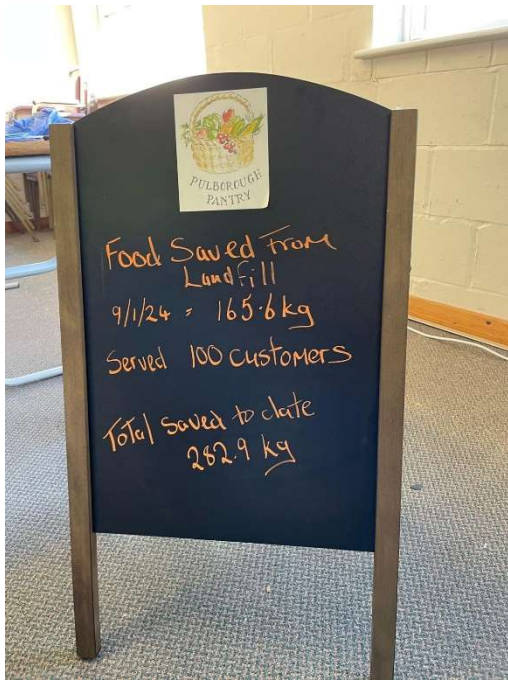 PULBOROUGH
PANTRY
Food Saved From
Landfill
9/1/24 = 165.6kg
Served 100 customers
Total saved to date
282.9 kg